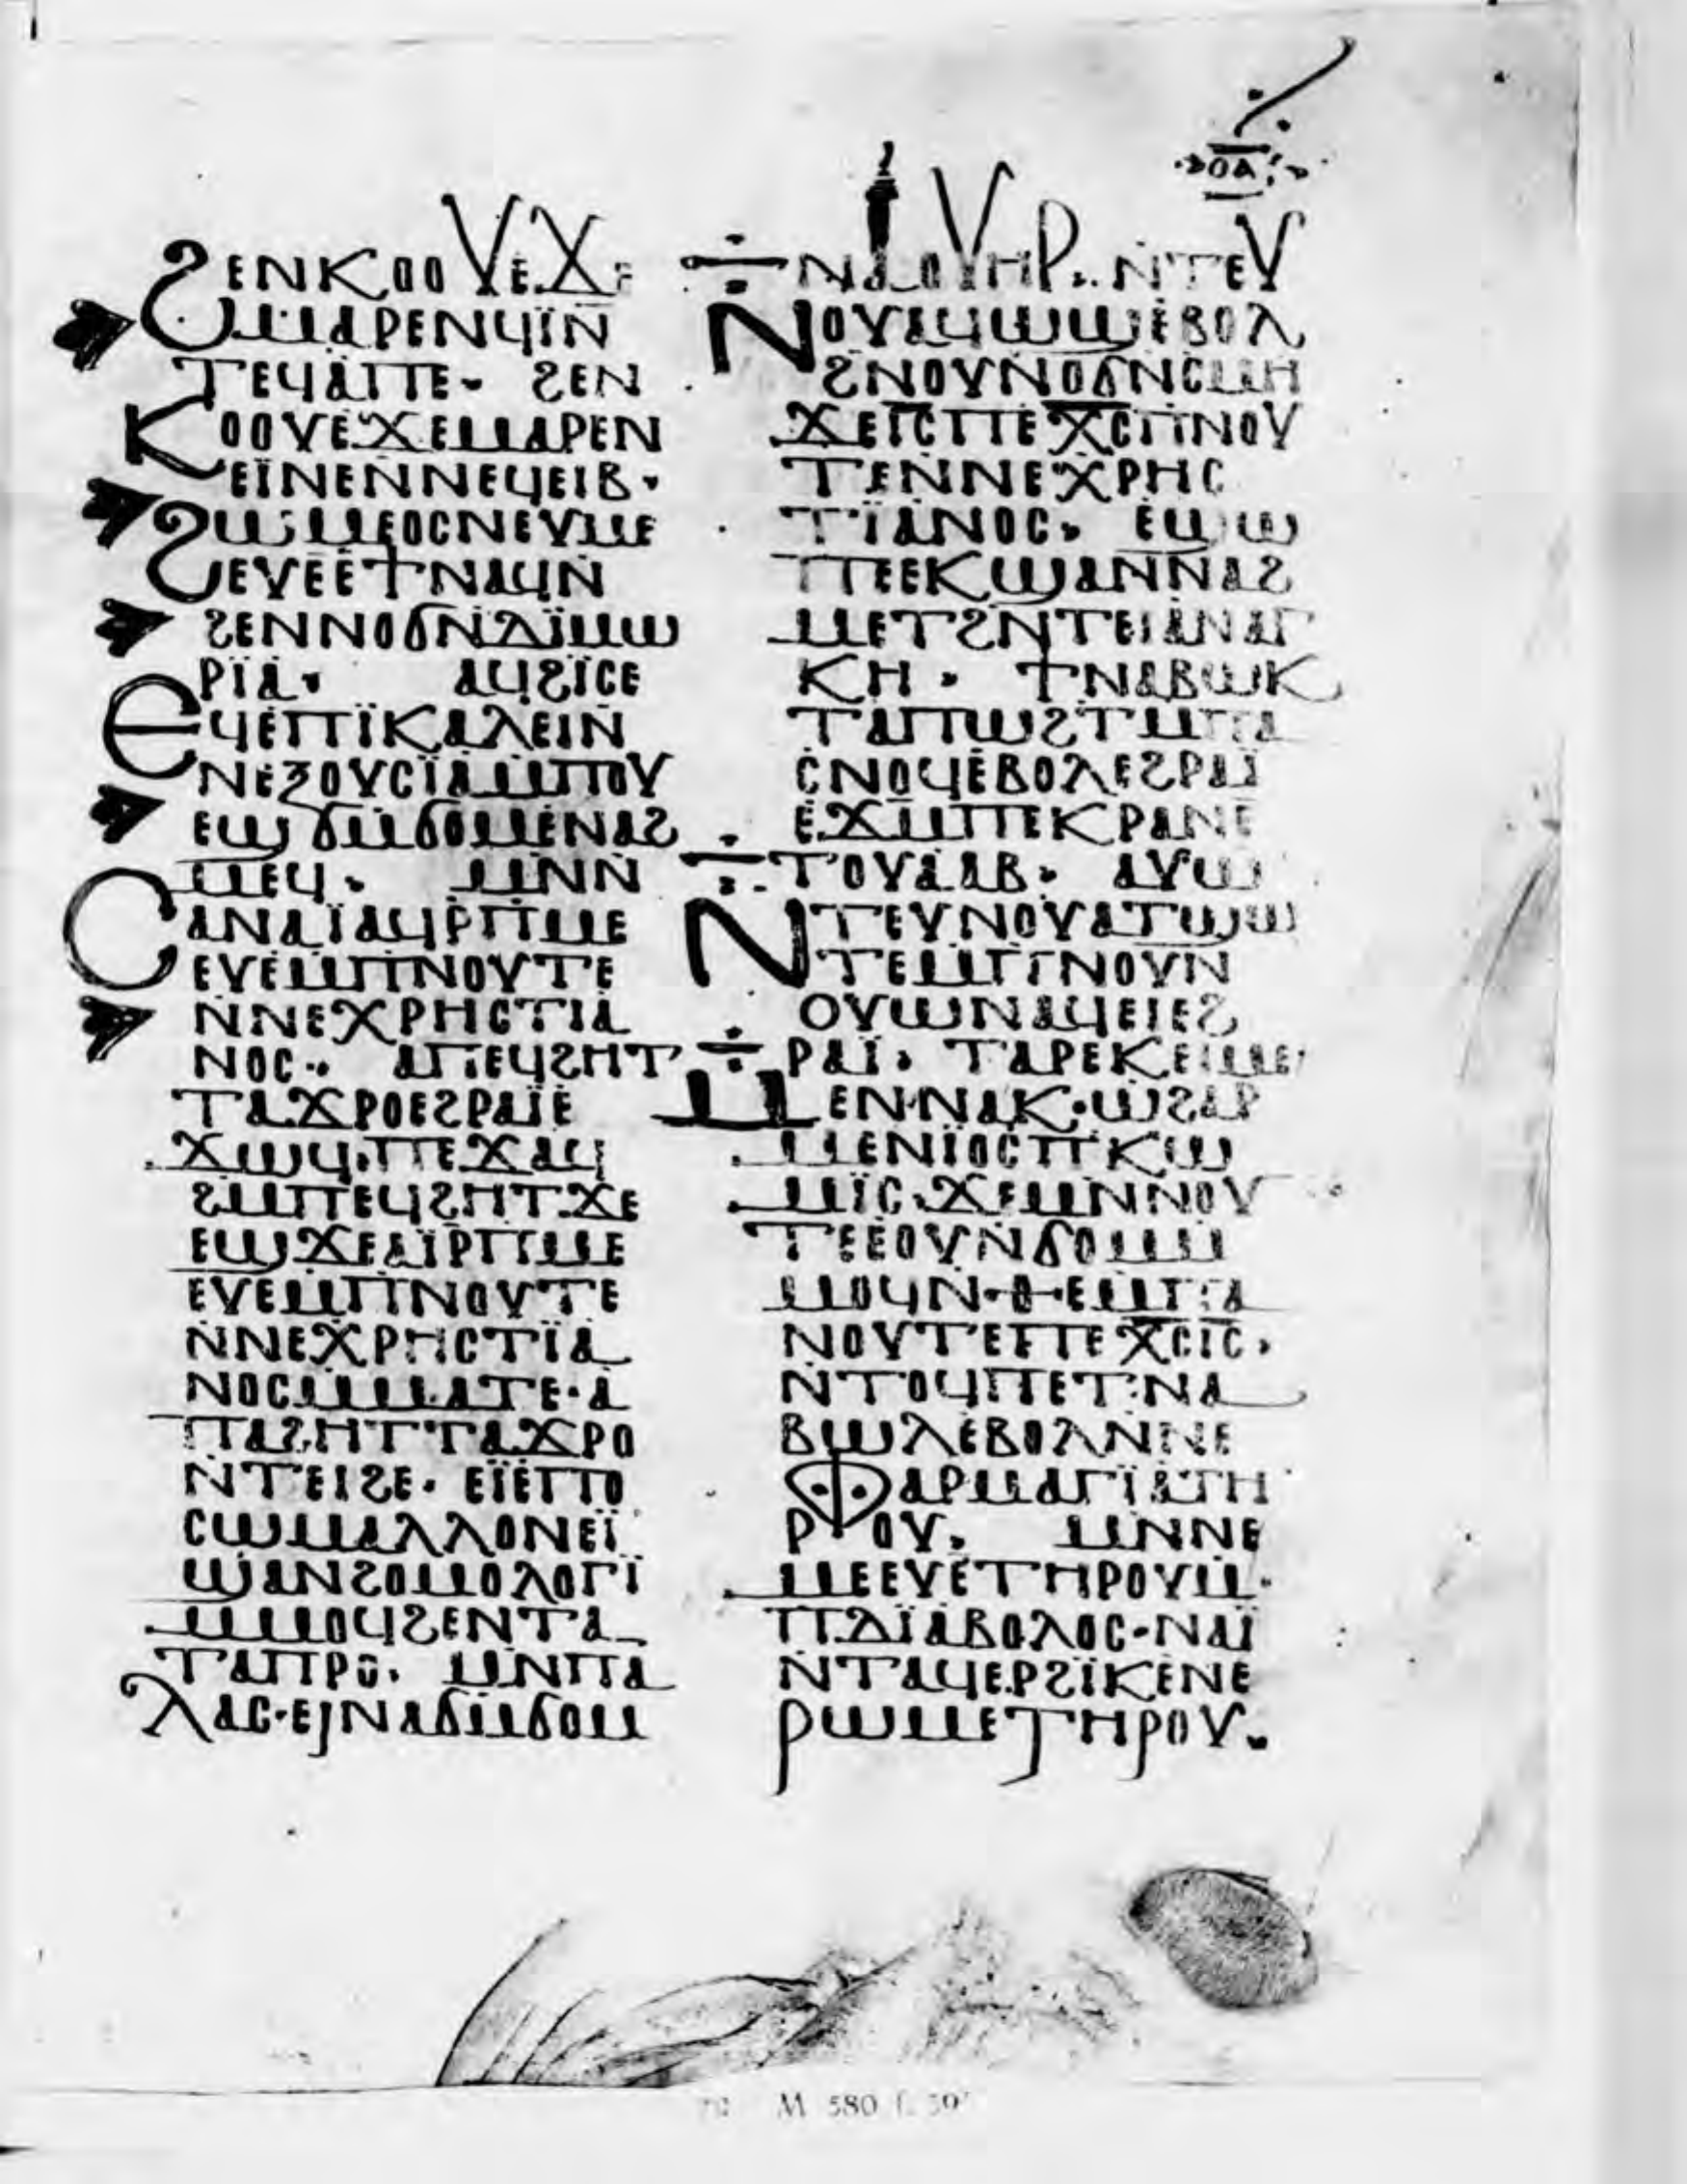 ⲟⲁ
ϩⲉⲛⲕⲟⲟⲩⲉ.ϫⲉ
ⲙⲁⲣⲉⲛϥⲓ̈ⲛ
ⲧⲉϥⲁⲡⲉ· ϩⲉⲛ
ⲕⲟⲟⲩⲉϫⲉⲙⲁⲣⲉⲛ
ⲉⲓ̈ⲛⲉⲛⲛⲉϥⲉⲓⲃ·
ϩⲱⲙⲉⲟⲥⲛⲉⲩⲙⲉ
ⲉⲩⲉⲉϯⲛⲁϥⲛ
ϩⲉⲛⲛⲟϭⲛⲇⲓ̈ⲙⲱ
ⲣⲓ̈ⲁ· ⲁϥϩⲓ̈ⲥⲉ
ⲉϥⲉⲡⲓ̈ⲕⲁⲗⲉⲓⲛ
ⲛⲉⲝⲟⲩⲥⲓ̈ⲁⲙⲡⲟⲩ
ⲉϣϭⲙϭⲟⲙⲉⲛⲁϩ
ⲙⲉϥ· ⲙⲛⲛ
ⲥⲁⲛⲁⲓ̈ⲁϥⲣⲡⲙⲉ
ⲉⲩⲉⲙⲡⲛⲟⲩⲧⲉ
ⲛⲛⲉⲭⲣⲏⲥⲧⲓⲁ
ⲛⲟⲥ·· ⲁⲡⲉϥϩⲏⲧ
ⲧⲁϫⲣⲟⲉϩⲣⲁⲓ̈ⲉ
ϫⲱϥ·ⲡⲉϫⲁϥ
ϩⲙⲡⲉϥϩⲏⲧ.ϫⲉ
ⲉϣϫⲉⲁⲓ̈ⲣⲡⲙⲉ
ⲉⲩⲉⲙⲡⲛⲟⲩⲧⲉ
ⲛⲛⲉⲭⲣⲏⲥⲧⲓ̈ⲁ
ⲛⲟⲥⲙⲙⲁⲧⲉ·ⲁ
ⲡⲁϩⲏⲧⲧⲁϫⲣⲟ
ⲛⲧⲉⲓϩⲉ· ⲉⲓ̈ⲉⲡⲟ
ⲥⲱⲙⲁⲗⲗⲟⲛⲉⲓ̈
ϣⲁⲛϩⲟⲙⲟⲗⲟⲅⲓ̈
ⲙⲙⲟϥϩⲉⲛⲧⲁ
ⲧⲁⲡⲣⲟ· ⲙⲛⲡⲁ
ⲗⲁⲥ·ⲉⲓⲛⲁϭⲙϭⲟⲙ
ⲛⲁⲟⲩⲏⲣ·. ⲛⲧⲉⲩ
ⲛⲟⲩⲁϥⲱϣⲉⲃⲟⲗ
ϩⲛⲟⲩⲛⲟϭⲛⲥⲙⲏ
ϫⲉⲓ̅ⲥ̅ⲡⲉⲭ̅ⲥ̅ⲡⲛⲟⲩ
ⲧⲉⲛⲛⲉⲭⲣⲏⲥ
ⲧⲓ̈ⲁⲛⲟⲥ· ⲉϣⲱ
ⲡⲉⲉⲕϣⲁⲛⲛⲁϩ
ⲙⲉⲧϩⲛⲧⲉⲓⲁⲛⲁⲅ
ⲕⲏ· ϯⲛⲁⲃⲱⲕ
ⲧⲁⲡⲱϩⲧⲙⲡⲁ
ⲥⲛⲟϥⲉⲃⲟⲗⲉϩⲣⲁⲓ̈
ⲉϫⲙⲡⲉⲕⲣⲁⲛⲉ
ⲧⲟⲩⲁⲁⲃ· ⲁⲩⲱ
ⲛⲧⲉⲩⲛⲟⲩⲁⲧϣⲱ
ⲧⲉⲙⲡⲛⲟⲩⲛ
ⲟⲩⲱⲛⲁϥⲉⲓⲉϩ
ⲣⲁⲓ̈· ⲧⲁⲣⲉⲕⲉⲓⲙⲉ
ⲙⲉⲛⲛⲁⲕ·ⲱϩⲁⲣ
ⲙⲉⲛⲓ̈ⲟⲥⲡⲕⲱ
ⲙⲓ̈ⲥ·ϫⲉⲙⲛⲛⲟⲩ
ⲧⲉⲉⲟⲩⲛϭⲟⲙⲙ
ⲙⲟϥⲛ·ⲑⲉⲙⲡⲁ
ⲛⲟⲩⲧⲉⲡⲉⲭ̅ⲥ̅ⲓ̅ⲥ̅·
ⲛⲧⲟϥⲡⲉⲧⲛⲁ
ⲃⲱⲗⲉⲃⲟⲗⲛⲛⲉ
ⲫⲁⲣⲙⲁⲅⲓ̈ⲁⲧⲏ
ⲣⲟⲩ· ⲙⲛⲛⲉ
ⲙⲉⲉⲩⲉⲧⲏⲣⲟⲩⲙ·
ⲡⲇⲓ̈ⲁⲃⲟⲗⲟⲥ·ⲛⲁⲓ̈
ⲛⲧⲁϥⲉⲣϩⲓ̈ⲕⲉⲛⲉ
ⲣⲱⲙⲉⲧⲏⲣⲟⲩ·
M 580 f.